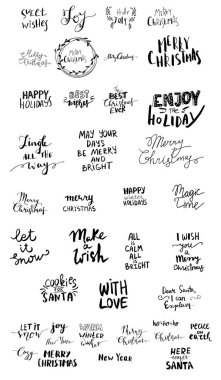 sweet
wishes
Joy
Holly
Jolly
Merry
Christmas
MERRY
CHRISTMAS
Merry
Christmas
Merry Christmas
HAPPY
HOLIDAYS
BEST
wishes
BEST
Christmas
EVER
ENJOY
THE
HOLIDAY
Jingle
ALL THE
Way
MAY YOUR
DAYS
BE MERRY
AND
BRIGHT
Merry
Christmas
Merry
Christmas
merry
CHRISTMAS
HAPPY
WINTER
HOLIDAYS
Magic
Time
let
it
snow
Make
a
wish
ALL
IS
CALM
ALL
IS
BRIGHT
I WISH
you
a
Merry
Christmas
cookies
FOR
SANTA
WITH
LOVE
Dear Santa,
I can
Explain
LET IT
snow
joy
WARM
winter
wishes
Merry
Christmas
ho-ho-ho
Merry
Christmas
PEACE
on
earth
Cozy
MERRY
CHRISTMAS
New Year
HERE
comes
SANTA